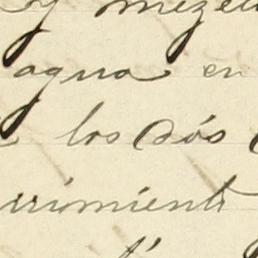 y mezcl
agua en
los dós
rrimient